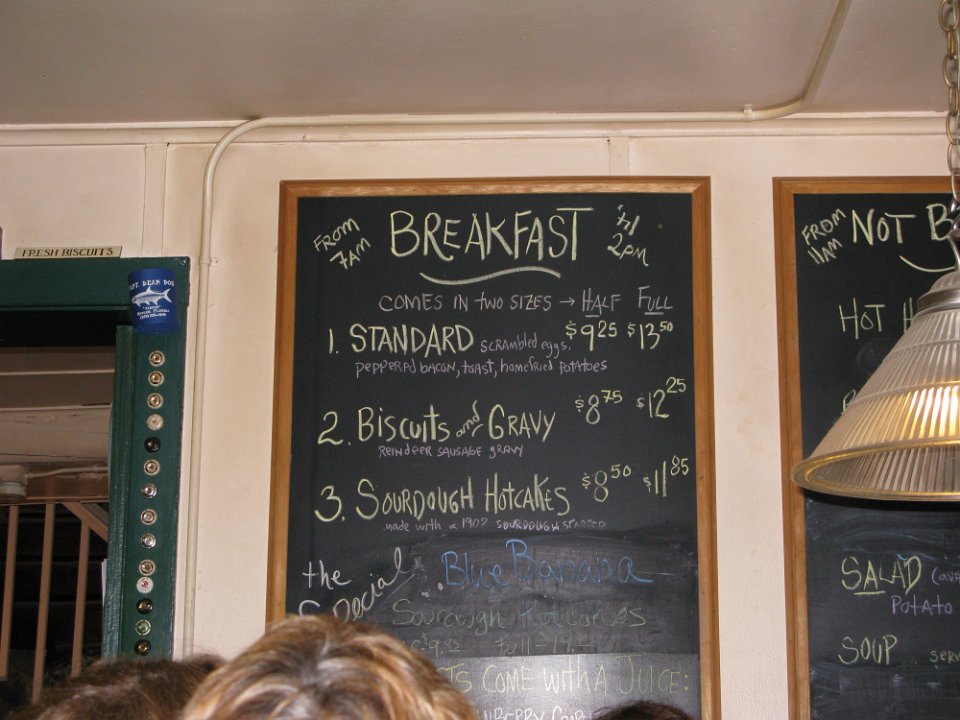 FRESH BISCUITS
FROM 7AM
BREAKFAST
2PM
COMES IN TWO SIZES → HALF FULL
1. STANDARD SCRAMBLED eggs. $9.25 $13.50
PEPPERED BACON, TOAST, HOMEFRIED POTATOES
2. BISCUITS and GRAVY $8.75 $12.25
REINDEER SAUSAGE GRAVY
3. SOURDOUGH HOTCAKES $8.50 $11.85
made with a 1902 SOURDOUGH STARTER
the Special
Blue Banana
Sourdough Hotcakes
COME WITH A JUICE:
FROM 11AM
NOT B
HOT H
SALAD
POTATO
SOUP